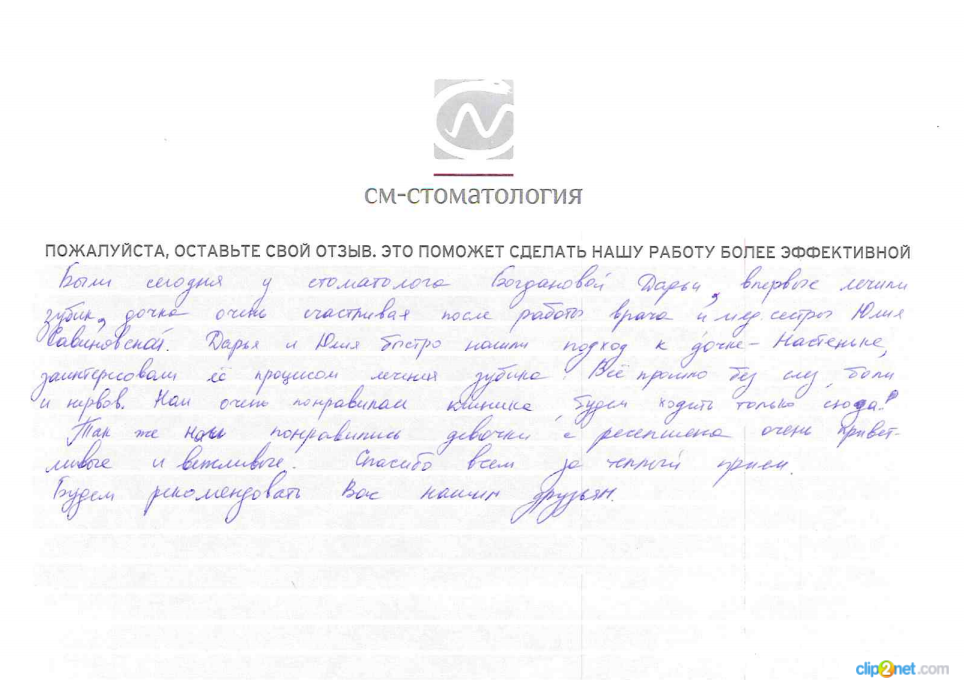 см-стоматология
ПОЖАЛУЙСТА, ОСТАВЬТЕ СВОЙ ОТЗЫВ. ЭТО ПОМОЖЕТ СДЕЛАТЬ НАШУ РАБОТУ БОЛЕЕ ЭФФЕКТИВНОЙ
Были сегодня у стоматолога Богдановой Дарьи, впервые лечили
зубик, дочка очень счастливая после работы врача и мед.сестры Юлия
Савиновской. Дарья и Юлия быстро нашли подход к дочке - Настеньке,
заинтересовали её процесом лечения зубика. Всё прошло без слёз, боли
и нервов. Нам очень понравилась клиника, будем ходить только сюда!
Так же нам понравились девочки с ресепшена очень привет-
ливые и вежливые. Спасибо всем за теплый прием.
Будем рекомендовать Вас нашим друзьям.
clip2net.com